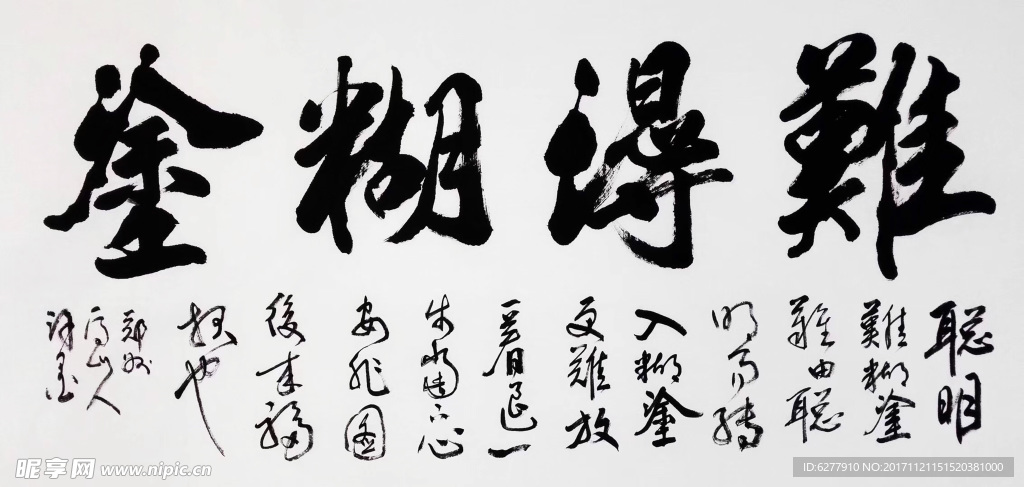 難得糊塗
聪明
難糊塗
難由聪
明而轉
入糊塗
更難放
一着退一
步當下心
安非图
後来福
报也
昵享网 www.nipic.cn
ID:6277910 NO:20171121151520381000